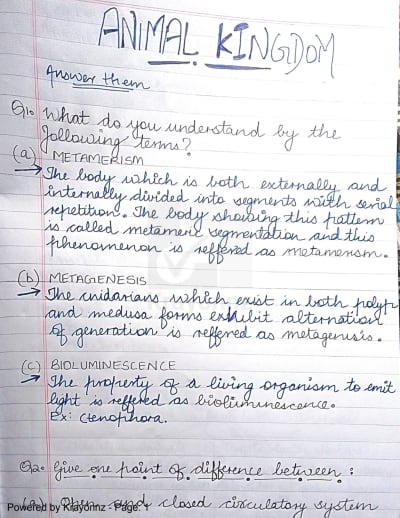 ANIMAL KINGDOM
Answer them
Q1. What do you understand by the
following terms?
(a) METAMERISM
→ The body which is both externally and
internally divided into segments with serial
repetition. The body showing this pattern
is called metameric segmentation and this
phenomenon is reffered as metamerism.
(b) METAGENESIS
→ The cnidarians which exist in both polyp
and medusa forms exhibit alternation
of generation is reffered as metagenesis.
(c) BIOLUMINESCENCE
→ The property of a living organism to emit
light is reffered as bioluminescence.
Ex: Ctenophora.
Q2. Give one point of difference between :
(a) Open and closed circulatory system
Powered by Krayonnz - Page: 1